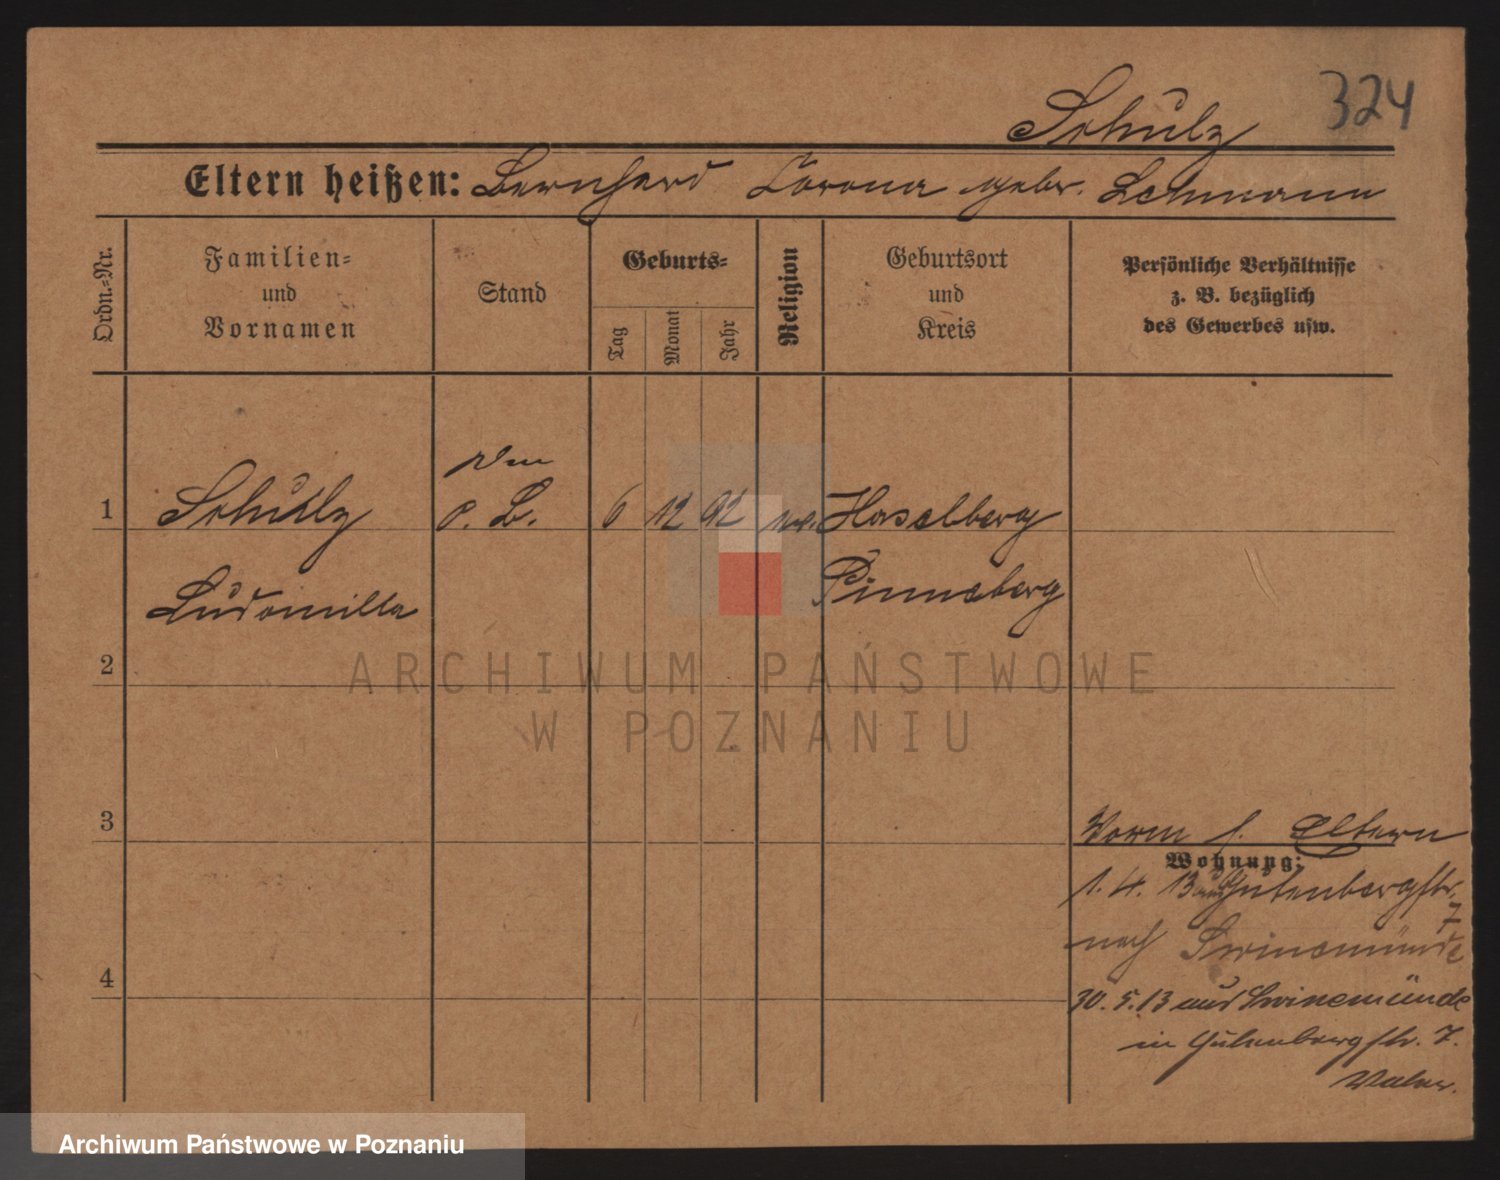 324
Schulz
Eltern heißen: Bernhard Corona gebr. Lehmann
Ordn.-Nr.
Familien-
und
Vornamen
Stand
Geburts-
Tag
Monat
Jahr
Religion
Geburtsort
und
Kreis
Persönliche Verhältnisse
z. B. bezüglich
des Gewerbes usw.
1
Schulz
o. B.
6
12
92
Haselberg
Ludomilla
Pinneberg
2
ARCHIWUM PAŃSTWOWE
W POZNANIU
3
Eltern
Wohnung:
1. 4. 13 aus Gutenbergstr.
7
nach Swinemünde
4
30. 5. 13 aus Swinemünde
in Gutenbergstr. 7.
Vater.
Archiwum Państwowe w Poznaniu